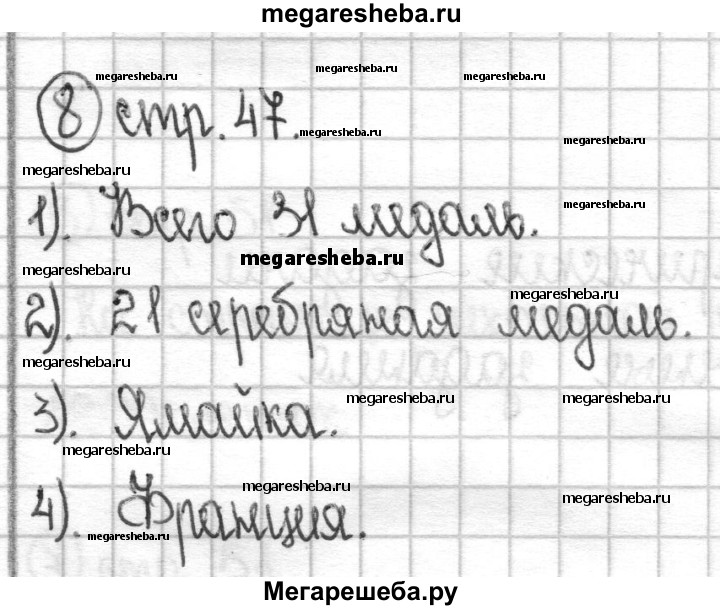 megaresheba.ru
megaresheba.ru megaresheba.ru megaresheba.ru
8 стр. 47. megaresheba.ru
megaresheba.ru
megaresheba.ru
1). Всего 31 медаль. megaresheba.ru
megaresheba.ru
megaresheba.ru
megaresheba.ru
2). 21 серебряная медаль.
megaresheba.ru
megaresheba.ru megaresheba.ru
3). Ямайка.
megaresheba.ru
megaresheba.ru
megaresheba.ru
4). Франция.
megaresheba.ru
Мегарешеба.ру